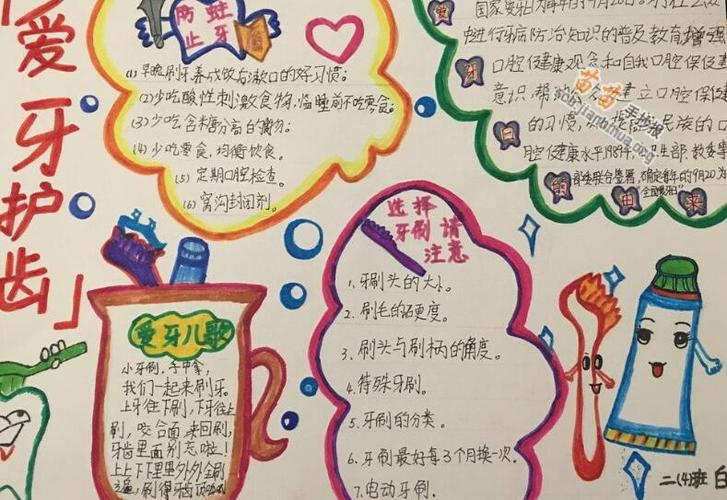 「爱牙护齿」
防蛀
止牙
(1)早晚刷牙养成饭后漱口的好习惯；
(2)少吃酸性刺激食物，临睡前不吃零食；
(3)少吃含糖分高的食物；
(4)少吃零食，均衡饮食。
(5)定期口腔检查。
(6)窝沟封闭剂。
爱牙日的由来
进行牙病防治知识的普及教育增强
口腔健康观念和自我口腔保健
意识
建立口腔保健
的习惯，
民族的口
腔健康水平1989年，
生部，教委等
部委联合签署，确定每年的9月20为
"全国爱牙日"
苗苗手抄报
shouchaobao.org
爱牙儿歌
小牙刷，手中拿，
我们一起来刷牙。
上牙往下刷，下牙往上
刷，咬合面来回刷，
牙齿里面别忘啦！
上上下下里里外外全刷
3遍，刷得牙齿
选择
牙刷请
注意
1、牙刷头的大小。
2、刷毛的硬度。
3、刷头与刷柄的角度。
4、特殊牙刷。
5、牙刷的分类。
6、牙刷最好每3个月换一次。
7、电动牙刷。
二(4)班